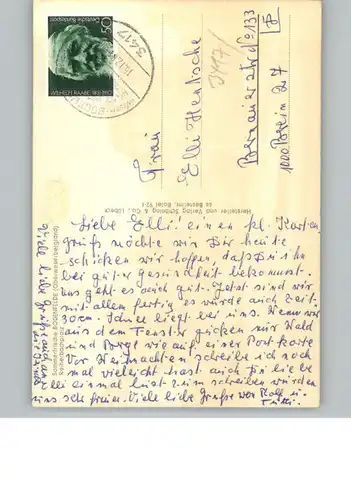 50
DEUTSCHE BUNDESPOST
WILHELM RAABE 1831-1910
3417
Frau
Elli Hentsche
3417/
1000 Berlin 27
Hersteller und Verlag Schöning & Co., Lübeck
Liebe Elli! einen kl. Karten
gruß möchte wir Dir heute
schicken wir hoffen, daß Du ihn
bei guter Gesundheit bekommst.
Uns geht es auch gut. Jetzt sind wir
mit allem fertig es wurde auch Zeit.
30cm Schnee liegt bei uns. Wenn wir
aus dem Fenster gucken nur Wald
und Berge wie auf einer Postkarte
Vor Weihnachten schreibe ich noch
mal vielleicht hast auch Du liebe
Elli einmal lust zum schreiben würden
uns sehr freuen. Viele liebe Grüße von Rolf u.
Viele liebe Grüße auch an